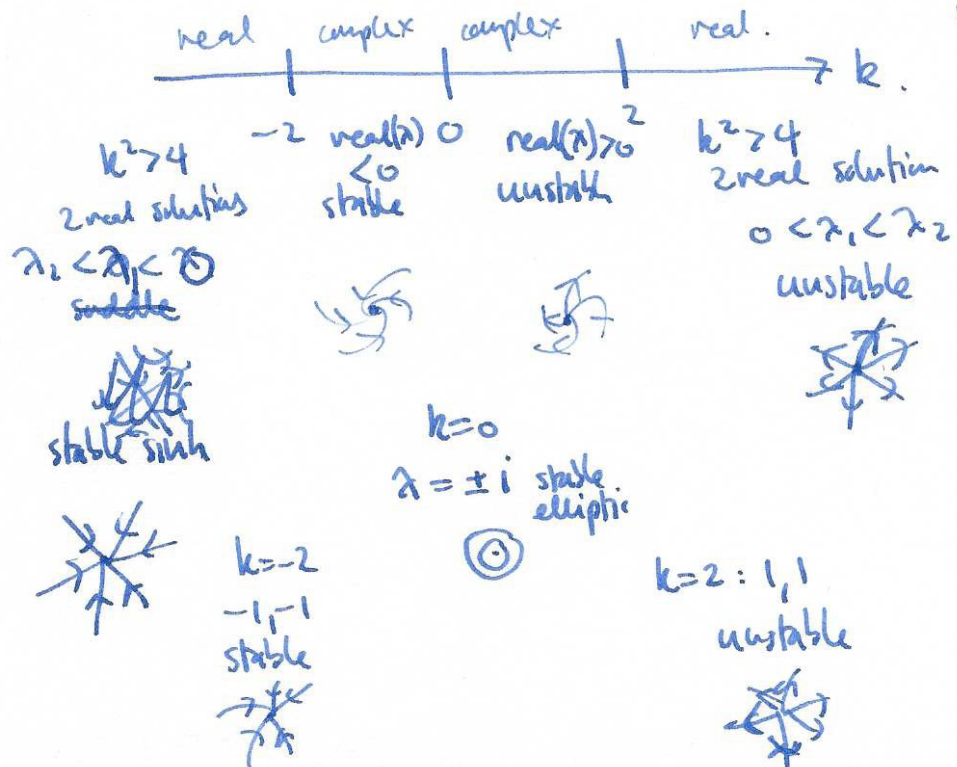 real complex complex real.
k.
-2 0 2
k²>4
2 real solutions
λ₂ < λ₁ < 0
saddle
stable sink
real(λ)
<0
stable
real(λ)>0
unstable
k²>4
2 real solution
0 < λ₁ < λ₂
unstable
k=0
λ = ± i stable
elliptic
k=-2
-1,-1
stable
k=2 : 1,1
unstable